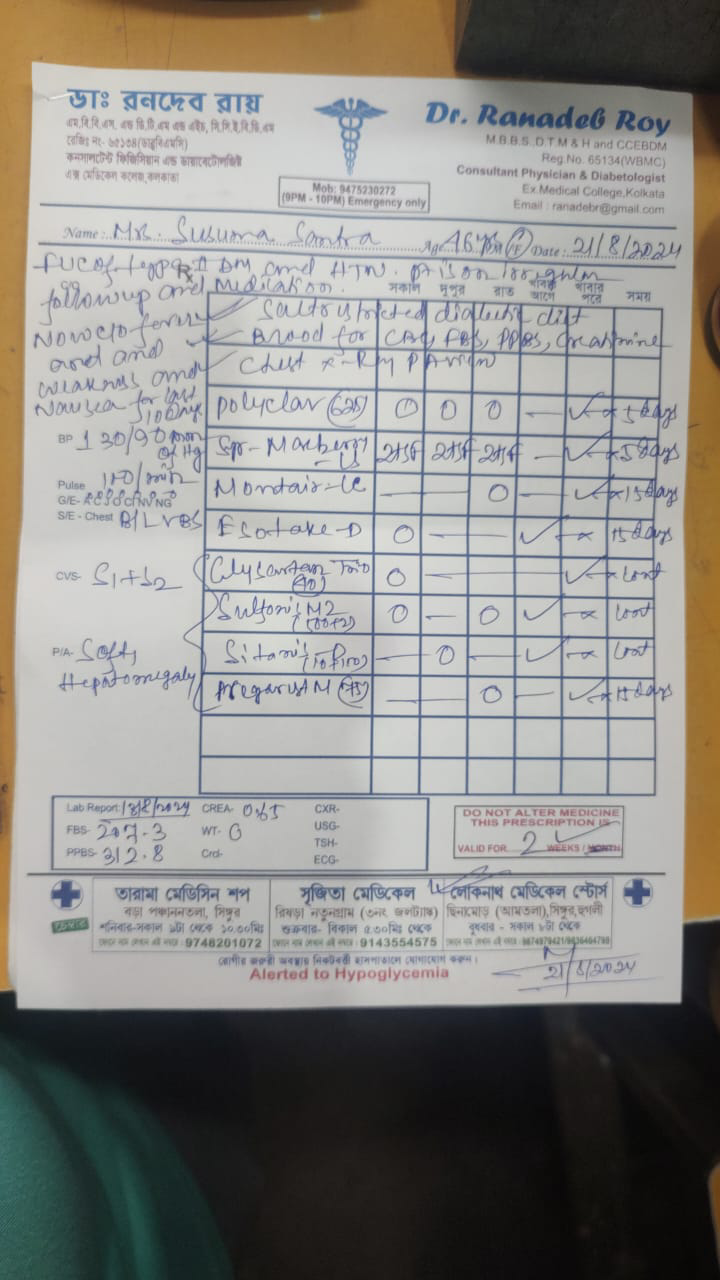 ডাঃ রনদেব রায়
এম.বি.বি.এস, এন্ড ডি.টি.এম এন্ড এইচ, সি.সি.ই.বি.ডি.এম
রেজিঃ নং- ৬৫১৩৪(ডাব্লুবিএমসি)
কনসালটেন্ট ফিজিসিয়ান এন্ড ডায়াবেটোলজিস্ট
এক্স মেডিকেল কলেজ, কলকাতা
Dr. Ranadeb Roy
M.B.B.S.,D.T.M & H and CCEBDM
Reg.No. 65134(WBMC)
Consultant Physician & Diabetologist
Ex.Medical College,Kolkata
Email : ranadebr@gmail.com
Mob: 9475230272
(9PM - 10PM) Emergency only
Name: Mrs. Susuma Santra Age 46 Date: 21/8/2024
DM and HTN. Pt is on irregular
followup and Medication.
সকাল দুপুর রাত খাবার আগে খাবার পরে সময়
Now c/o fever
and
weakness and
Nausea for last
10 days
Salt restricted diabetic diet
Blood for CBC, FBS, PPBS, Creatinine
Chest X-Ray PA view
Polyclav (625) 5 days
Syp- 5 days
Montair-LC 15 days
Esotake-D 15 days
(40) Cont
M2 (500+2) Cont
Cont
M (75) 15 days
BP 130/90 mm of Hg
Pulse 110/min
G/E-
S/E - Chest B/L VBS
CVS- S1+S2
P/A- Soft,
Hepatomegaly
Lab Report: CREA- 0.65 CXR-
FBS- 207.3 WT- USG-
PPBS- 312.8 Crd- TSH-
ECG-
DO NOT ALTER MEDICINE
THIS PRESCRIPTION IS
VALID FOR 2 WEEKS / MONTH
চেম্বার
তারামা মেডিসিন শপ
বড়া পঞ্চাননতলা, সিঙ্গুর
শনিবার-সকাল ৯টা থেকে ১০.৩০মিঃ
9748201072
সৃজিতা মেডিকেল
রিষড়া নতুনগ্রাম (৩নং জলট্যাঙ্ক)
শুক্রবার- বিকাল ৫.৩০মিঃ থেকে
9143554575
লোকনাথ মেডিকেল স্টোর্স
ছিনামোড় (আমতলা),সিঙ্গুর,হুগলী
বুধবার - সকাল ৮টা থেকে
রোগীর জরুরী অবস্থায় নিকটবর্তী হাসপাতালে যোগাযোগ করুন।
Alerted to Hypoglycemia
21/8/2024